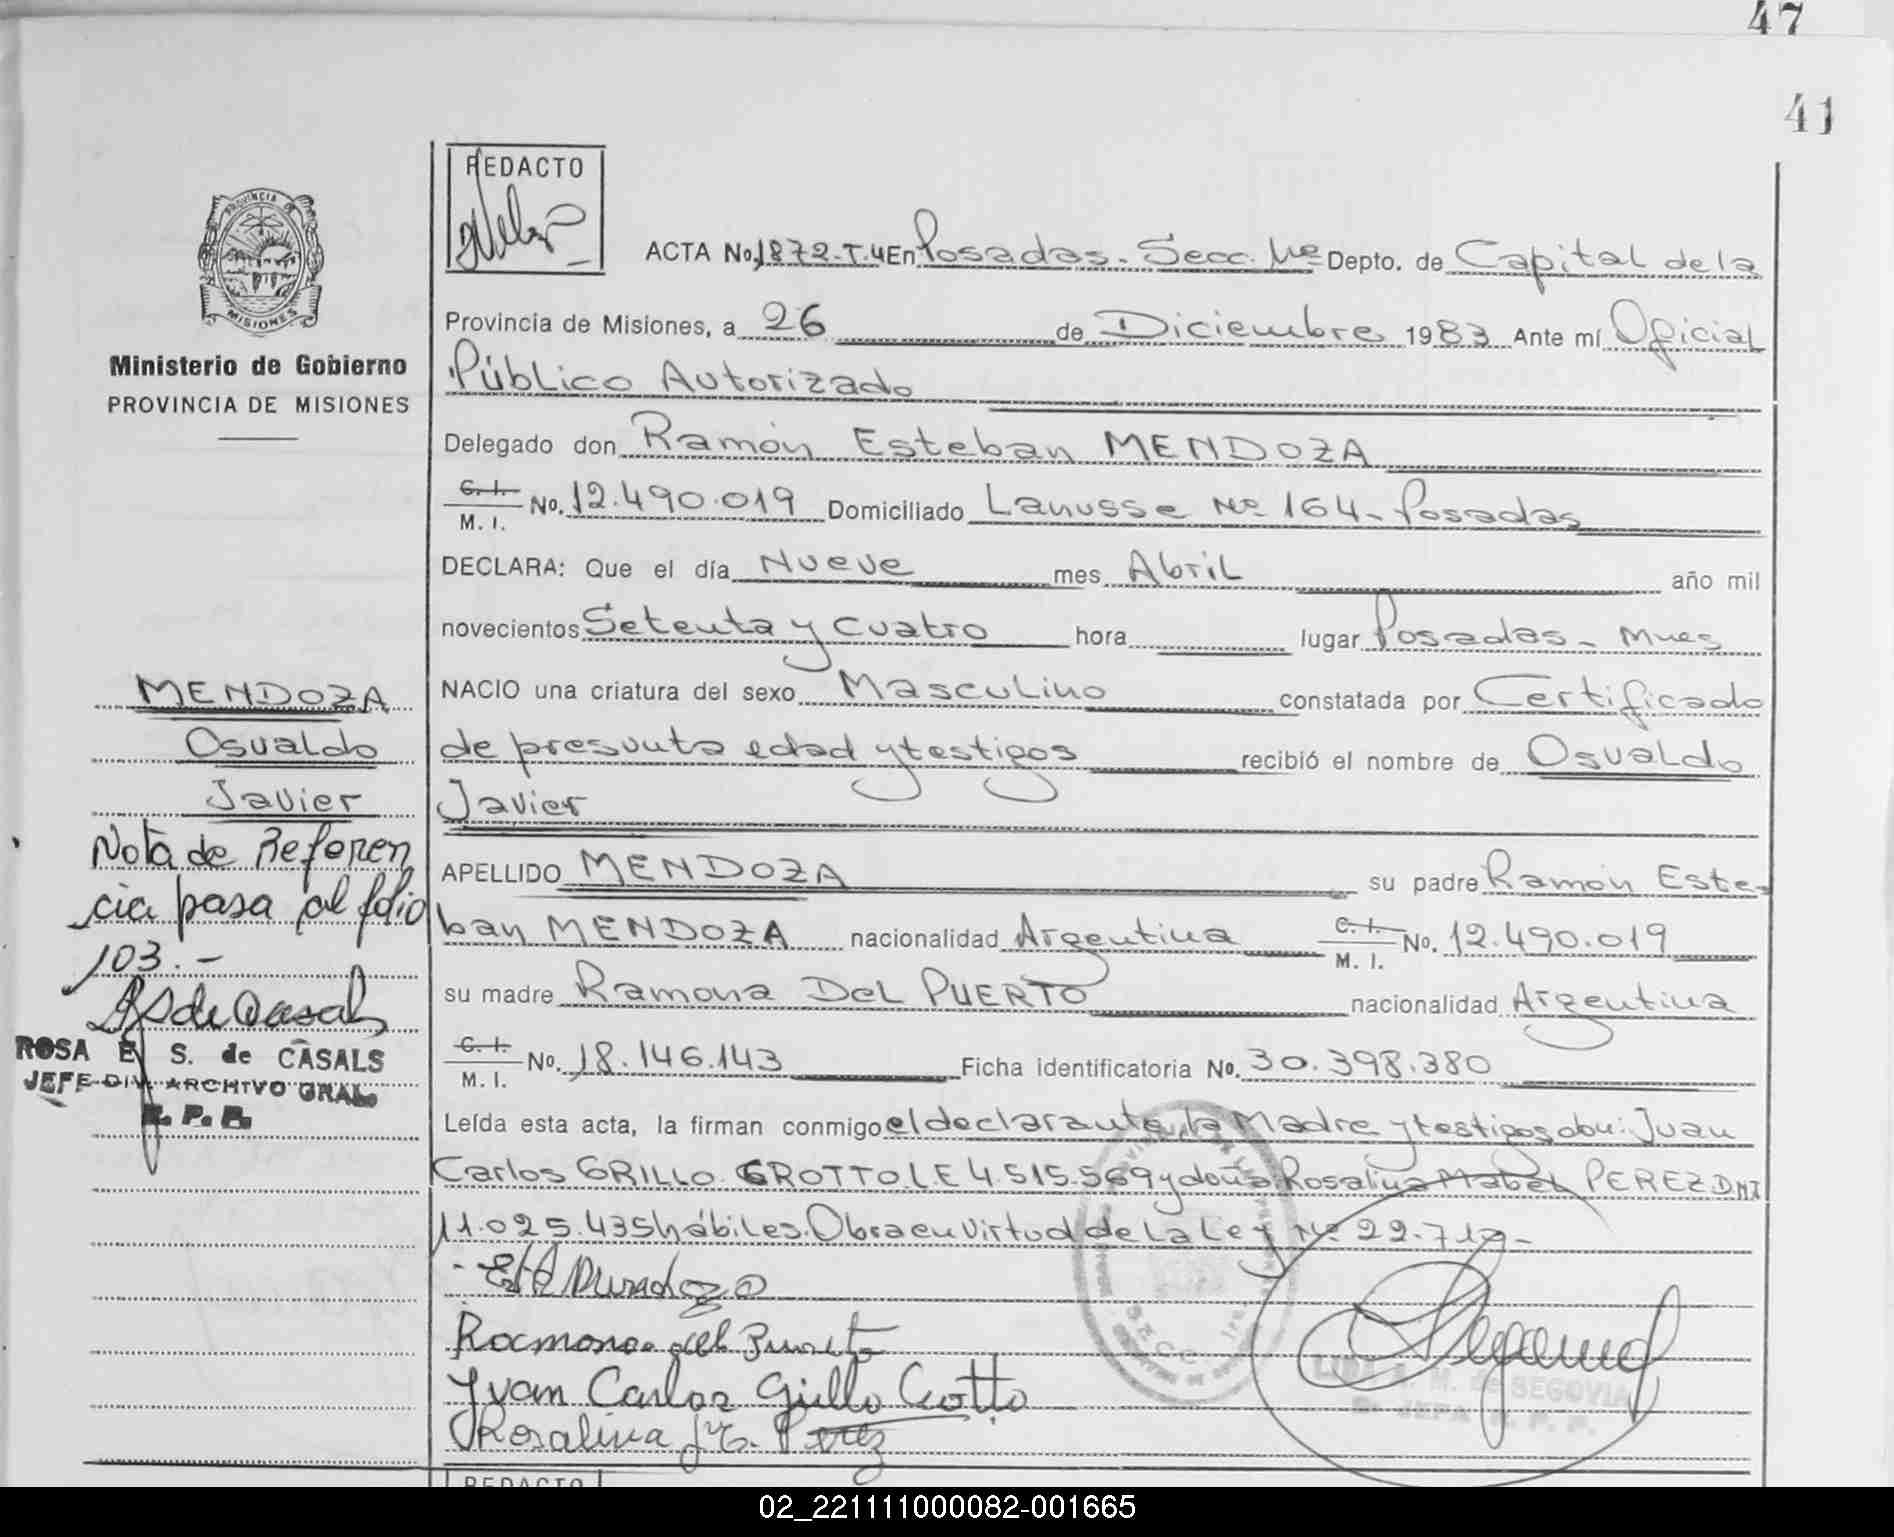 47
41
REDACTO
PROVINCIA DE
MISIONES
Ministerio de Gobierno
PROVINCIA DE MISIONES
ACTA No. 1872-T.4 En Posadas - Secc. 1ra Depto. de Capital de la
Provincia de Misiones, a 26 de Diciembre 1983 Ante mí Oficial
Público Autorizado
Delegado don Ramón Esteban MENDOZA
C. I. M. I. No. 12.490.019 Domiciliado Lanusse Nº 164 - Posadas
DECLARA: Que el día Nueve mes Abril año mil
novecientos Setenta y cuatro hora lugar Posadas - Mnes
NACIO una criatura del sexo Masculino constatada por Certificado
de presunta edad y testigos recibió el nombre de Osvaldo
Javier
APELLIDO MENDOZA su padre Ramón Este-
ban MENDOZA nacionalidad Argentina C. I. M. I. No. 12.490.019
su madre Ramona Del PUERTO nacionalidad Argentina
C. I. M. I. No. 18.146.143 Ficha identificatoria No. 30.398.380
Leída esta acta, la firman conmigo el declarante, la Madre y testigos don: Juan
Carlos GRILLO GROTTO L.E 4.515.569 y doña Rosalina Mabel PEREZ D.N.I
11.025.435 hábiles. Obra en virtud de la Ley Nº 22.712 -
Ramona del Puerto
Juan Carlos Grillo Grotto
Rosalina M. Perez
LIDA A. M. de SEGOVIA
MENDOZA
Osvaldo
Javier
Nota de Referen
cia pasa al folio
103.-
ROSA E S. de CASALS
JEFE DIV. ARCHIVO GRAL
R. P. P.
REDACTO
02_221111000082-001665